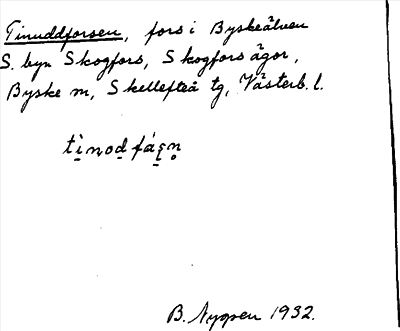 Tinuddforsen, fors i Byskeälven
S. byn Skogfors, Skogfors ägor,
Byske sn, Skellefteå tg, Västerb. l.
B. Nygren 1932.